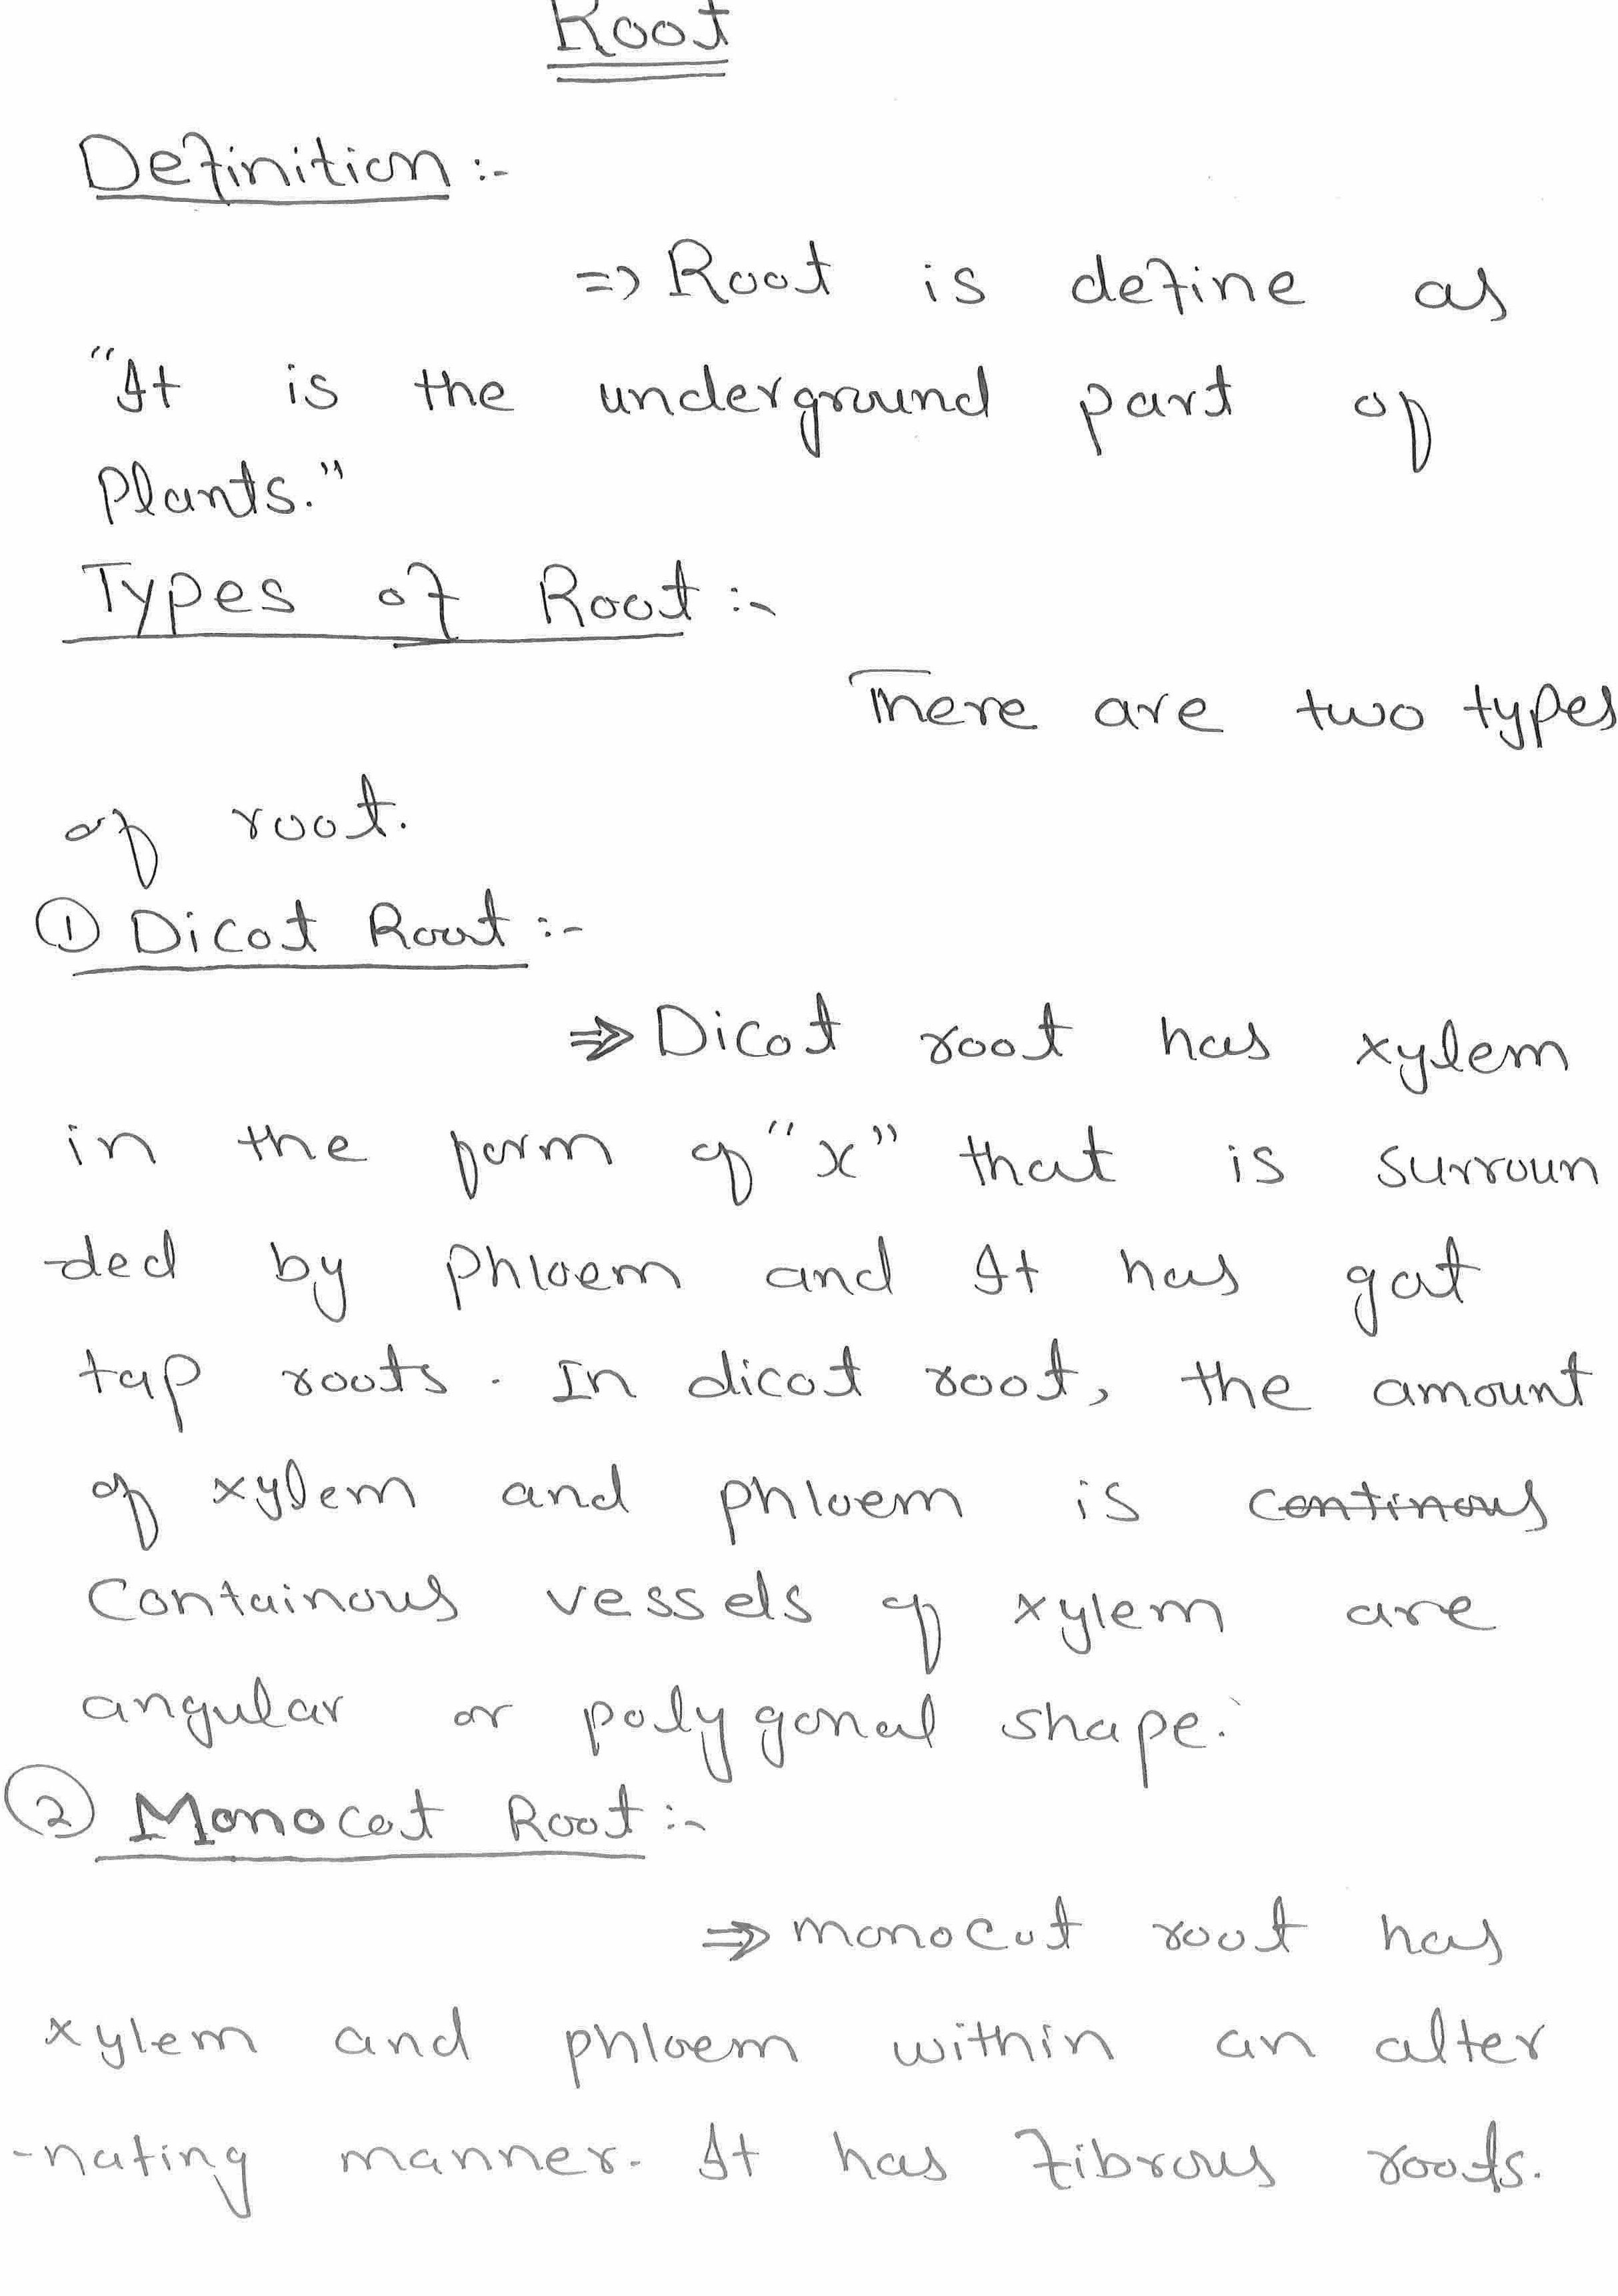 Root
Definition :-
=> Root is define as
"It is the underground part of
Plants."
Types of Root :-
There are two types
of root.
① Dicot Root :-
=> Dicot root has xylem
in the form of "x" that is surroun
-ded by phloem and It has got
tap roots. In dicot root, the amount
of xylem and phloem is continous
Containous vessels of xylem are
angular or polygonal shape.
② Monocot Root :-
=> monocot root has
xylem and phloem within an alter
-nating manner. It has fibrous roots.